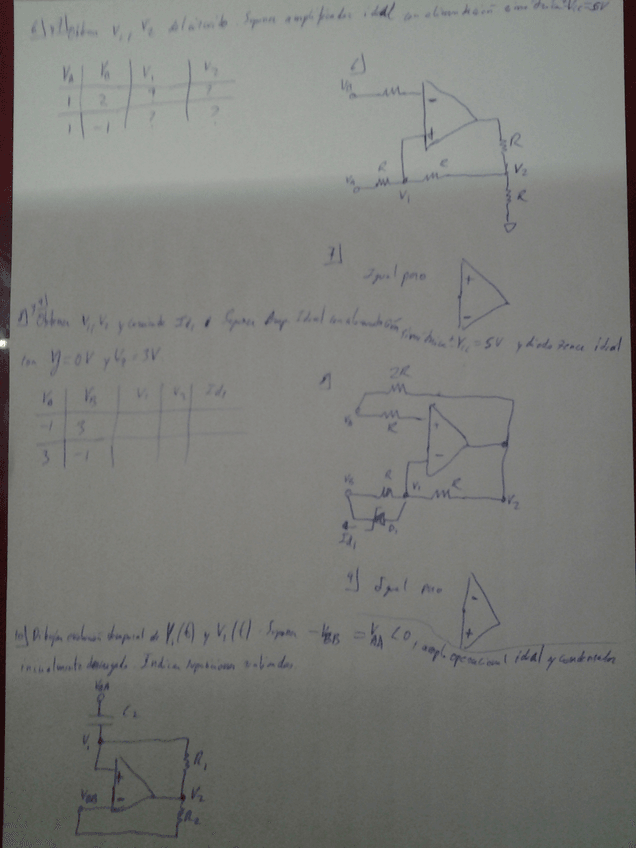 6) y 7) Obten V1, V2 del circuito. Supon amplificador ideal con alimentación simétrica Vcc=5V
VA VB V1 V2
1 2 ? ?
1 -1 ? ?
6)
VB
R
V2
R
VA R V1 R
7)
Igual pero
8) y 9) Obten V1, V2 y corriente Id1. Supon Amp Ideal con alimentación simétrica Vcc = 5V y diodo zener ideal
con Vγ=0V y Vz=3V
VA VB V1 V2 Id1
-1 3
3 -1
8)
2R
VA R
VB R V1 R V2
D1
Id1
9) Igual pero
10) Dibuja evolución temporal de V1(t) y V2(t). Supon -VBB = VAA < 0, ampl. operacional ideal y condensador
inicialmente descargado. Indica expresiones
VAA
C2
V1
R1
VBB
V2
R2